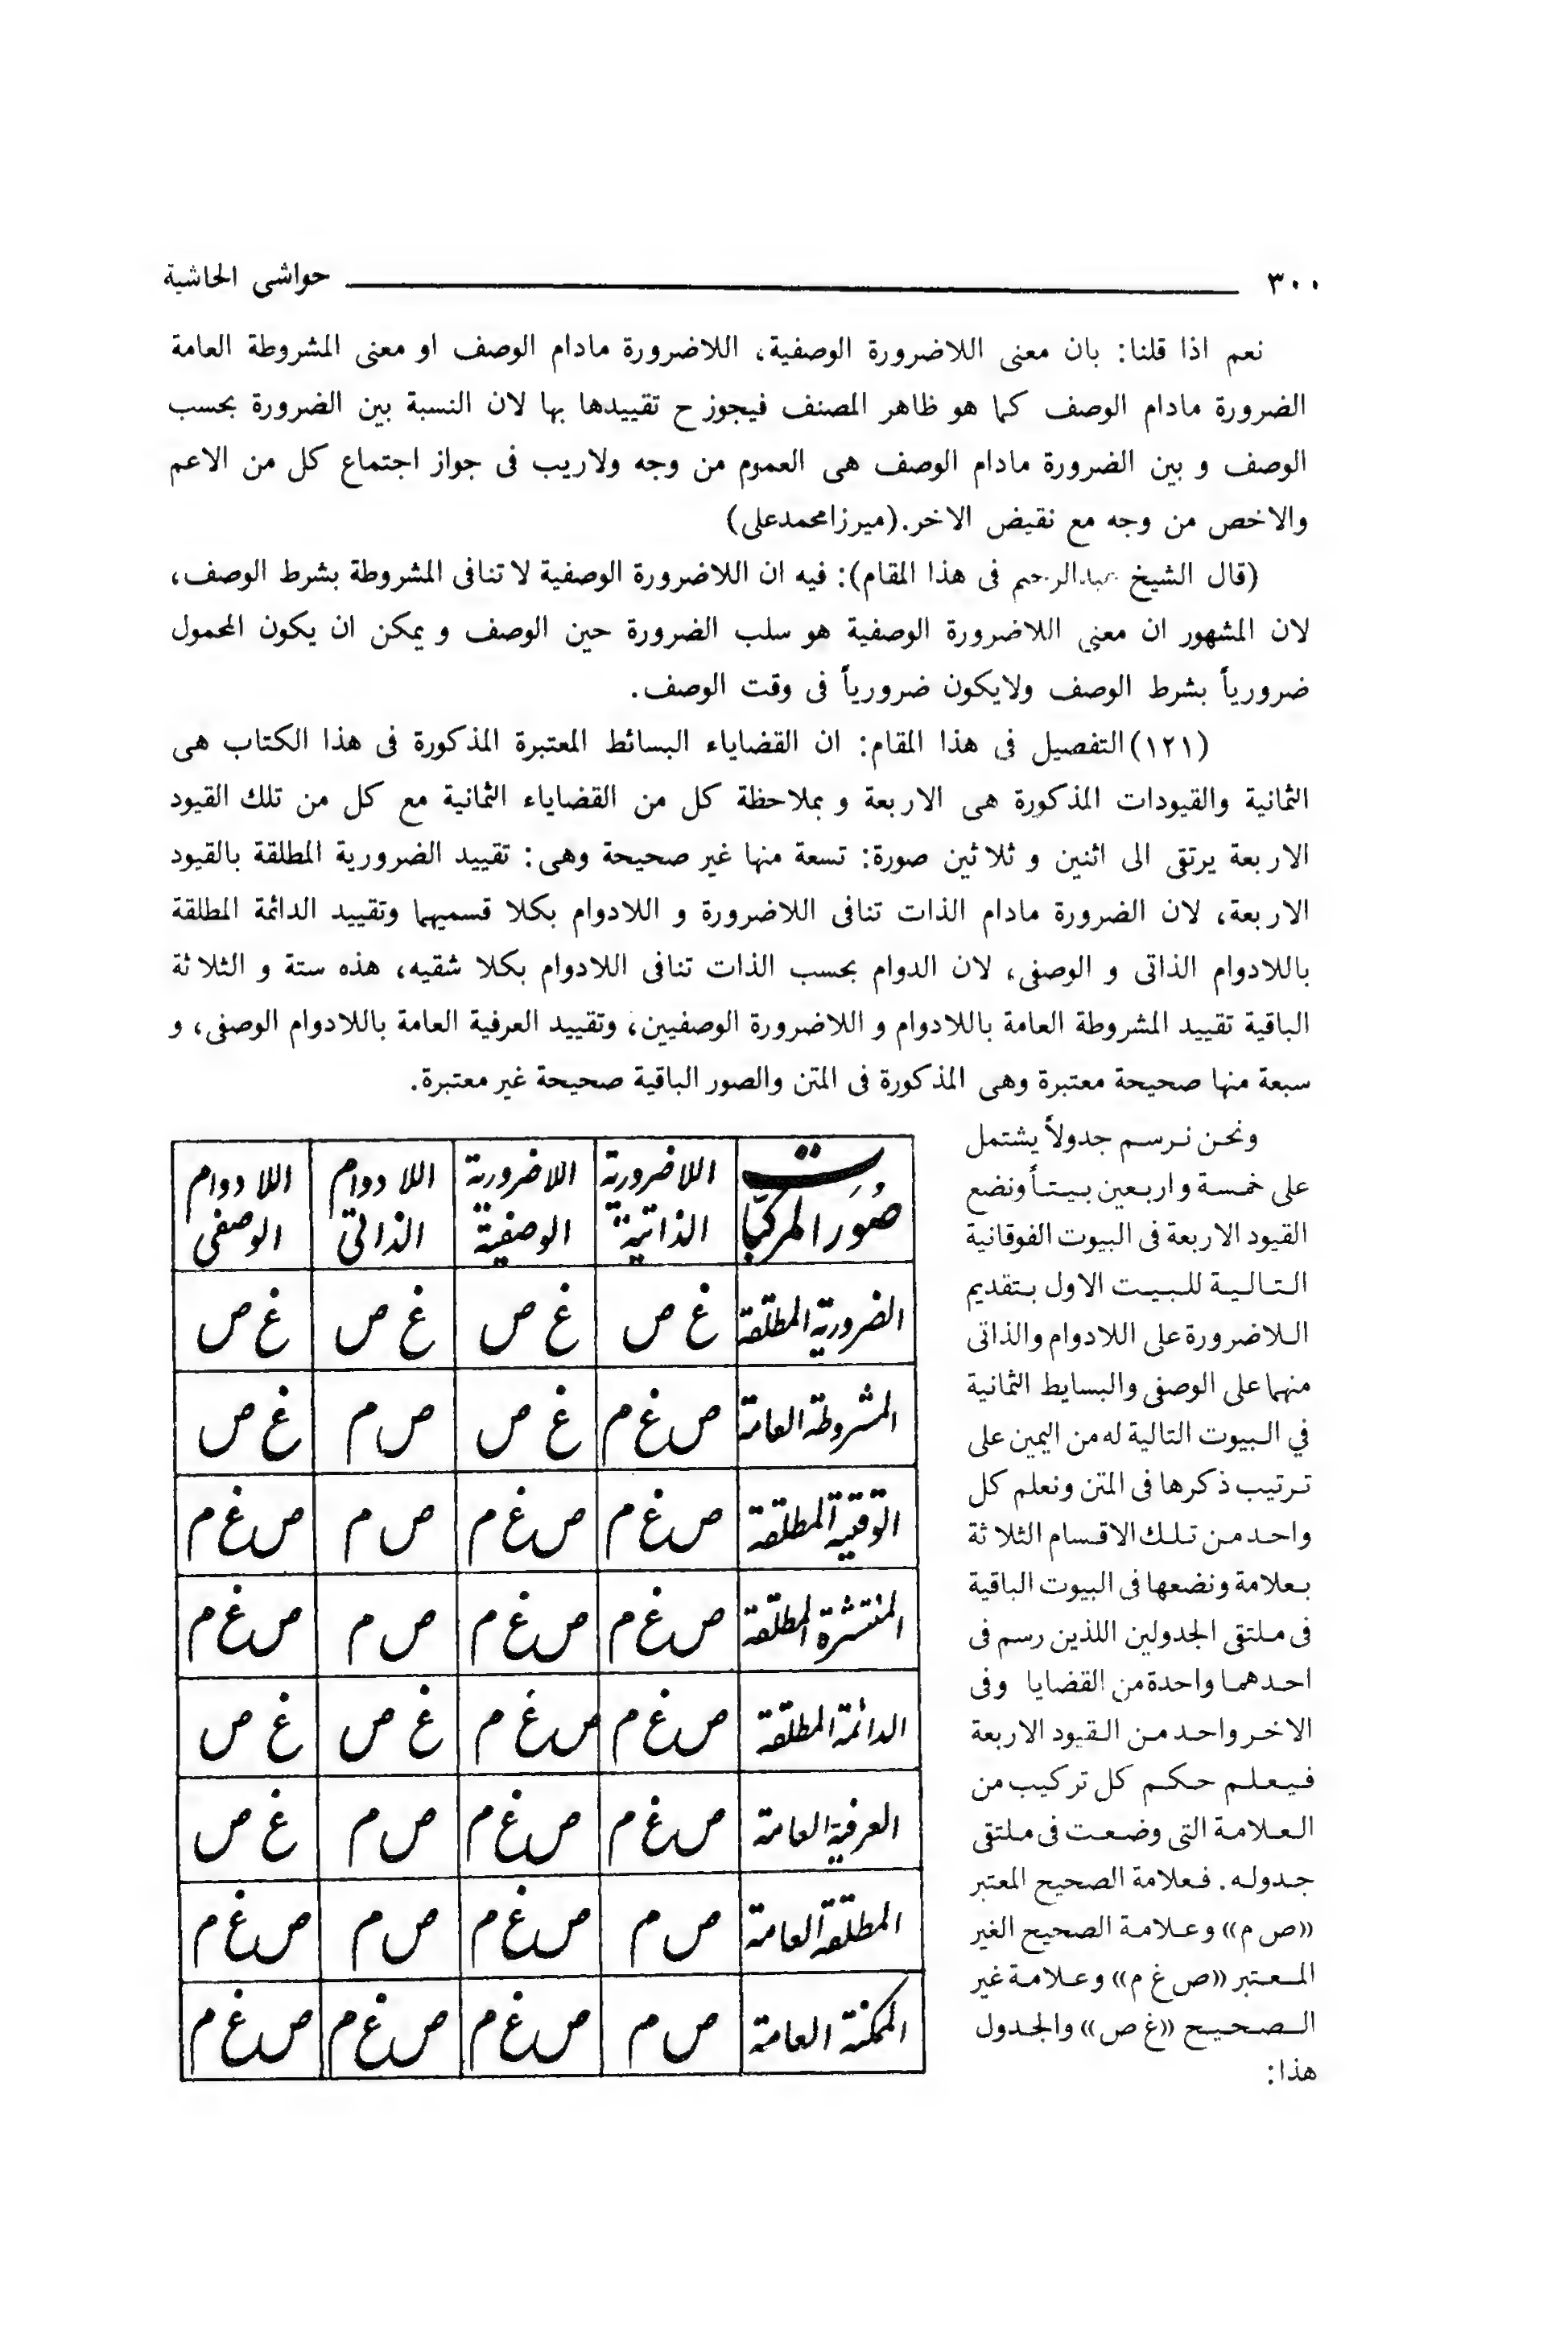 ٣٠٠ حواشى الحاشية
نعم اذا قلنا: بان معنى اللاضرورة الوصفية، اللاضرورة مادام الوصف او معنى المشروطة العامة
الضرورة مادام الوصف كما هو ظاهر المصنف فيجوز ح تقييدها بها لان النسبة بين الضرورة بحسب
الوصف و بين الضرورة مادام الوصف هى العموم من وجه ولاريب فى جواز اجتماع كل من الاعم
والاخص من وجه مع نقيض الاخر.(ميرزامحمدعلى)
(قال الشيخ عبدالرحيم فى هذا المقام): فيه ان اللاضرورة الوصفية لا تنافى المشروطة بشرط الوصف،
لان المشهور ان معنى اللاضرورة الوصفية هو سلب الضرورة حين الوصف و يمكن ان يكون المحمول
ضرورياً بشرط الوصف ولايكون ضرورياً فى وقت الوصف.
(١٢١) التفصيل فى هذا المقام: ان القضاياء البسائط المعتبرة المذكورة فى هذا الكتاب هى
الثمانية والقيودات المذكورة هى الاربعة و بملاحظة كل من القضاياء الثمانية مع كل من تلك القيود
الاربعة يرتقى الى اثنين و ثلاثين صورة: تسعة منها غير صحيحة وهى: تقييد الضرورية المطلقة بالقيود
الاربعة، لان الضرورة مادام الذات تنافى اللاضرورة و اللادوام بكلا قسميهما وتقييد الدائمة المطلقة
باللادوام الذاتى و الوصفى، لان الدوام بحسب الذات تنافى اللادوام بكلا شقيه، هذه ستة و الثلاثة
الباقية تقييد المشروطة العامة باللادوام و اللاضرورة الوصفيين، وتقييد العرفية العامة باللادوام الوصفى، و
سبعة منها صحيحة معتبرة وهى المذكورة فى المتن والصور الباقية صحيحة غير معتبرة.
ونحن نرسم جدولاً يشتمل
على خمسة واربعين بيتاً ونضع
القيود الاربعة فى البيوت الفوقانية
التالية للبيت الاول بتقديم
اللاضرورة على اللادوام والذاتى
منهما على الوصفى والبسايط الثمانية
في البيوت التالية له من اليمين على
ترتيب ذكرها فى المتن ونعلم كل
واحد من تلك الاقسام الثلاثة
بعلامة ونضعها فى البيوت الباقية
فى ملتقى الجدولين اللذين رسم فى
احدهما واحدة من القضايا وفى
الاخر واحد من القيود الاربعة
فيعلم حكم كل تركيب من
العلامة التى وضعت فى ملتقى
جدوله. فعلامة الصحيح المعتبر
«ص م» وعلامة الصحيح الغير
المعتبر «ص غ م» وعلامة غير
الصحيح «غ ص» والجدول
هذا:
صُوَر المركبات اللاضرورية الذاتية اللاضرورية الوصفية اللادوام الذاتى اللادوام الوصفى
الضرورية المطلقة غ ص غ ص غ ص غ ص
المشروطة العامة ص غ م غ ص ص م غ ص
الوقتية المطلقة ص غ م ص غ م ص م ص غ م
المنتشرة المطلقة ص غ م ص غ م ص م ص غ م
الدائمة المطلقة ص غ م ص غ م غ ص غ ص
العرفية العامة ص غ م ص غ م ص م غ ص
المطلقة العامة ص م ص غ م ص م ص غ م
الممكنة العامة ص م ص غ م ص غ م ص غ م